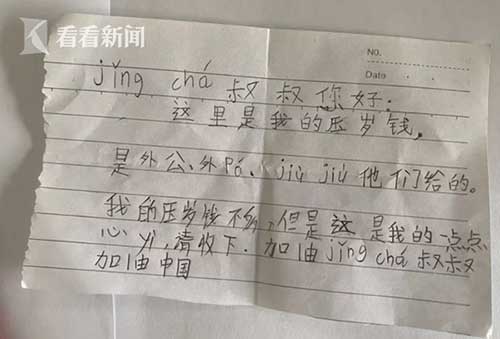 看看新闻
No.
Date
jǐng chá 叔叔您好:
这里是我的压岁钱,
是外公、外pó、jiù jiù 他们给的。
我的压岁钱不多,但是这是我的一点点
心 yì,请收下.加油 jǐng chá 叔叔
加油中国